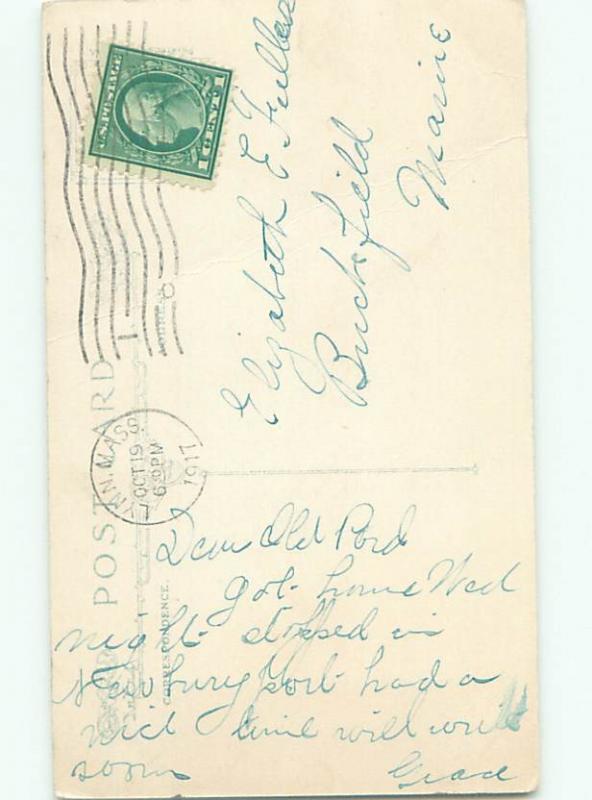 U.S. POSTAGE
1 CENT 1
Elizabeth E Fuller
Buckfield
Maine
POST CARD
ADDRESS
LYNN, MASS.
OCT 19
6-PM
1917
CORRESPONDENCE.
Dear Old Pard
got home Wed
night stopped in
Newburyport had a
nice time will write
soon
Grace